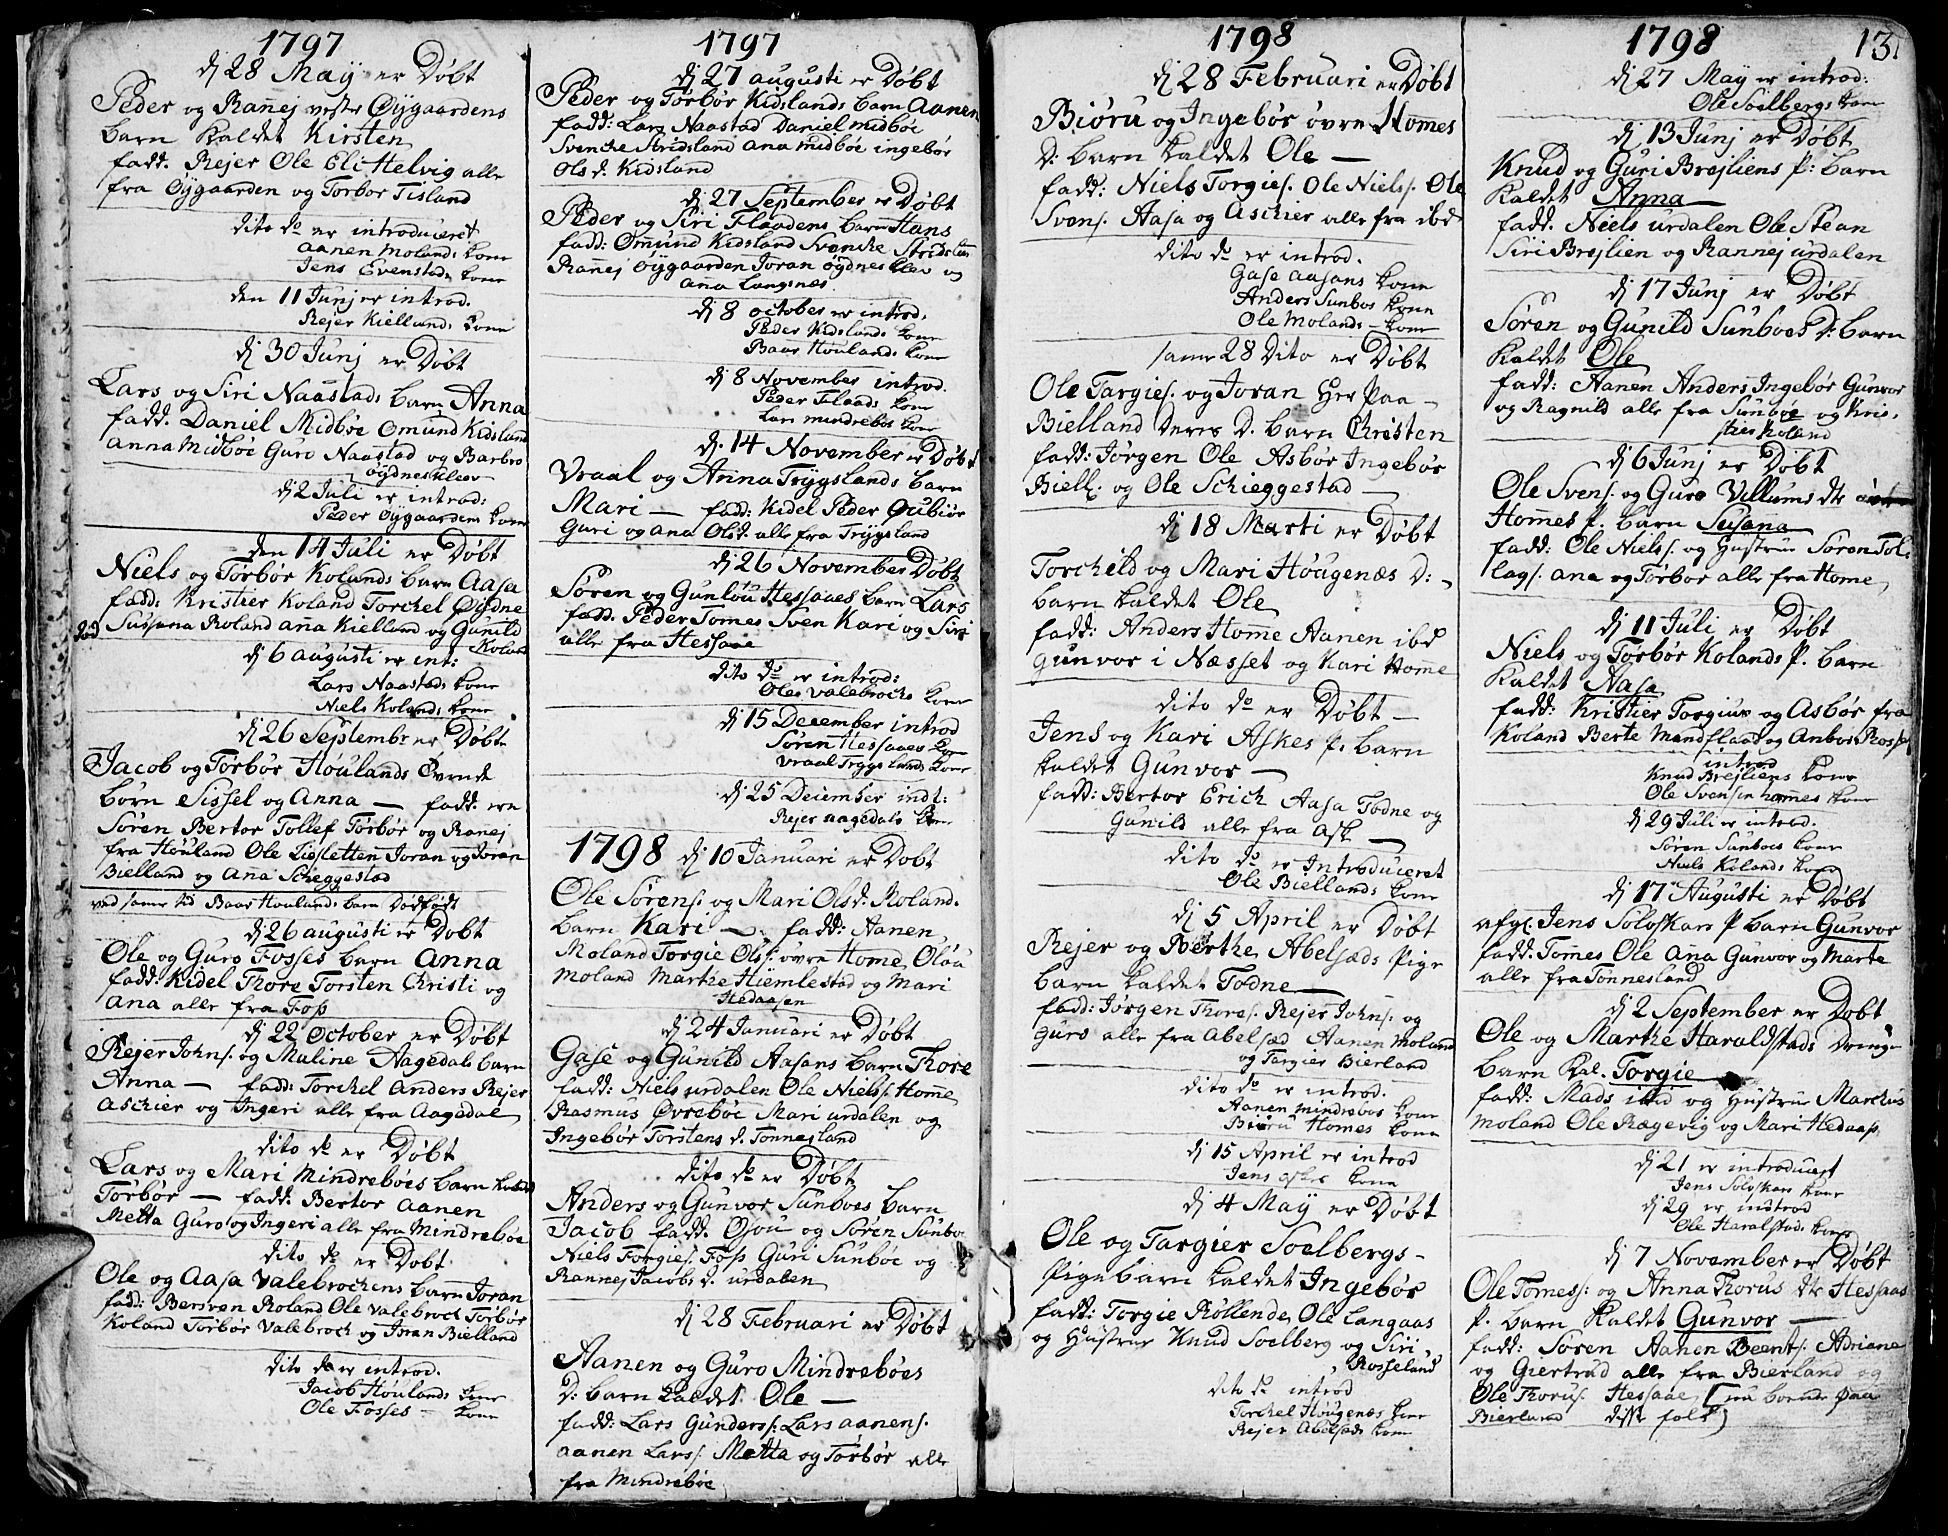 1797
dj 28 May er Døbt
Peder og Ranej vestr Øygaardens
barn kaldet Kirsten
fadd. Rejer Ole Eli Helvig alle
fra Øygaarden og Torbor Tisland
dito do er introduceret
Aanen Molands kone
Jens Evenstads kone
den 11 Junj er introd.
Rejer Kiellands kone
dj 30 Junj er Døbt
Lars og Siri Naastads barn Anna
fadd. Daniel Midbøe Omund Kidsland
Anna Midbøe Guro Naastad og Barbro
Øydneskleev
dj 2 Juli er introd:
Peder Øygaardens kone
den 14 Juli er Døbt
Niels og Torbør Kolands barn Aasa
fadd: Kristier Koland Torckel Øydne
Sussana Roland Anna Kielland og Gunild
Koland
dj 6 Augusti er int:
Lars Naastads kone
Niels Kolands kone
dj 26 Septembr er Døbt
Jacob og Torbør Høulands Øvrede
børn Sissel og Anna — fadd: ere
Søren Bertor Tollef Torbør og Ranej
fra Høuland Ole Lisletten Joran og Joran
Bielland og Ana Scheggestad
ved samme tid Baar Houlands barn Dødfødt
dj 26 Augusti er Døbt
Ole og Guro Fosses barn Anna
fadd: Kidel Thore Torsten Christi og
Ana alle fra Foss
dj 22 October er Døbt
Rejer Johns. og Maline Aagedals barn
Anna — fadd: Torckel Anders Rejer
Aschier og Ingeri alle fra Aagedal
dito do er Døbt
Lars og Mari Mindrebøes barn
Torbør — fadd. Bertor Aanen
Metta Guro og Ingeri alle fra Mindrebøe
dito do er Døbt
Ole og Aasa Valebrockens barn Joran
fadd: Bersven Roland Ole Valebrock Torbør
Koland Torbør Valebrock og Joran Bielland
dito do er introd.
Jacob Høulands kone
Ole Fosses — kone
1797
dj 27 Augusti er Døbt
Peder og Torbør Kidslands barn Aanen
fadd: Lars Naastad Daniel Midbøe
Svencke Stridsland Ana Midbøe Ingebør
Ols d. Kidsland
dj 27 September er Døbt
Peder og Siri Flaadens barn Hans
fadd: Omund Kidsland Svencke Stridsland
Ranej Øygaarden Joran Øydneskleev og
Ana Langnæs
dj 8 October er introd.
Peder Kidslands kone
Baar Høulands kone
dj 8 November introd.
Peder Flaads kone
Lars Mindrebøs kone
dj. 14 November er Døbt
Vraal og Anna Trygslands barn
Mari — fadd: Kidel Peder Gubiør
Guri og Ana Olsd. alle fra Trygsland
dj 26 November Døbt
Søren og Gunlou Hessaaes barn Lars
fadd: Peder Tomes Sven Kari og Siri
alle fra Hessaae
dito do er introd:
Oles Valebrocks kone
dj 15 December introd
Søren Hessaaes kone
Vraal Trygslands kone
dj 25 December indt:
Rejer Aagedals kone
1798 dj 10 Januari er Døbt
Ole Sørens. og Mari Olsd. Roland.
barn Kari — fadd: Aanen
Moland Torgie Ols. øvre Home Olou
Moland Marthe Hiemlestad og Mari
Hedaasen
dj 24 Januari er Døbt
Gase og Gunild Aasans barn Thore
fadd: Niels Urdalen Ole Niels. Home
Rasmus Øvrebøe Mari Urdalen og
Ingebør Torstens d. Tonnesland
dito do er Døbt
Anders og Gunvor Sunboes barn
Jacob fadd. Osou og Søren Sunboe
Niels Torgies. Foss Guri Sunbøe og
Rannej Jacobs d. Urdalen
dj 28 Februari er Døbt
Aanen og Guro Mindrebøes
D: barn kaldet Ole —
fadd: Lars Gunders. Lars Aanens.
Aanen Lars. Metta og Torbør alle
fra Mindrebøe
1798
dj 28 Februari er Døbt
Biøru og Ingebør øvre Homes
D: barn kaldet Ole —
fadd: Niels Torgies. Ole Niels. Ole
Svens. Aasa og Aschier alle fra ibd
dito do er introd.
Gase Aasans kone
Anders Sunbos kone
Ole Molands — kone
samme 28 Dito er Døbt
Ole Targies. og Joran Her Paa —
Bielland Deres D. barn Christen
fadd: Jørgen Ole Asbør Ingebør
Biell. og Ole Schieggestad —
dj 18 Marti er Døbt
Torchild og Mari Høugenæs D: —
barn kaldet Ole
fadd: Anders Home Aanen ibd
Gunvor i Næsset og Kari Home
dito do er Døbt —
Jens og Kari Askes P: barn
kaldet Gunvor —
fadd: Bertor Erich Aasa Todne og
Gunild alle fra Ask —
dito do er Introduceret
Ole Biellands kone
dj 5 April er Døbt
Rejer og Berthe Abelsæds Pige
barn kaldet Todne —
fadd: Jørgen Thores. Rejer Johns. og
Guro alle fra Abelsæd Aanen Moland
og Targier Bierland
dito do er introd.
Aanen Mindrebos kone
Biøru Homes kone
dj 15 April er introd
Jens Askes kone
dj 4 May er Døbt
Ole og Targier Soelbergs —
Pige barn kaldet Ingebør
fadd: Torgie Røllende Ole Langaas
og Hustrue Knud Soelberg og Siri
Rosseland
dito do introd
Torckel Høugenæs kone
Rejer Abelsæds kone
1798 131
dj 27 May er introd:
Ole Soelbergs kone
dj 13 Junj er Døbt
Knud og Guri Brejliens P: barn
kaldet Anna —
fadd. Niels Urdalen Ole Stean
Siri Brejlien og Rannej Urdalen
dj 17 Junj er Døbt
Søren og Gunild Sunboes D: barn
kaldet Ole
fadd: Aanen Anders Ingebør Gunvor
og Ragnild alle fra Sunbøe og Kris-
ties Koland
dj 6 Junj er Døbt
Ole Svens. og Guro Villums dtr
Homes P. barn Susana
fadd: Ole Niels. og Hustrue Søren Tol-
lags. Ana og Torbor alle fra Home
dj 11 Juli er Døbt
Niels og Torbør Kolands P. barn
kaldet Aasa
fadd: Kristier Torgiur og Asbør fra
Koland Berte Mandflaad og Anbor Ross
introd
Knud Brejliens kone
Ole Svensen Homes kone
dj 29 Juli er introd.
Søren Sunboes kone
Niels Kolands kone
dj 17 Augusti er Døbt
afgl. Jens Soloskars P barn Gunvor
fadd. Tomes Ole Ana Gunvor og Marte
alle fra Tonnesland
dj 2 September er Døbt
Ole og Marthe Haraldstads Drenge
barn kal. Torgie
fadd: Mads ibid og Hustrue Marchus
Moland Ole Rægevig og Mari Hedaas
dj 21 er introducert
Jens Soloskars kone
dj 29 er indtrod
Ole Haralstads kone
dj 7 November er Døbt
Ole Tomess: og Anna Thorus dtr Hessaas
P. barn kaldet Gunvor —
fadd: Søren Aanen Beents. Adriane
og Giertrud alle fra Bierland og
Ole Thorus. Hessaae [nu boende paa
Bierland disse folk]